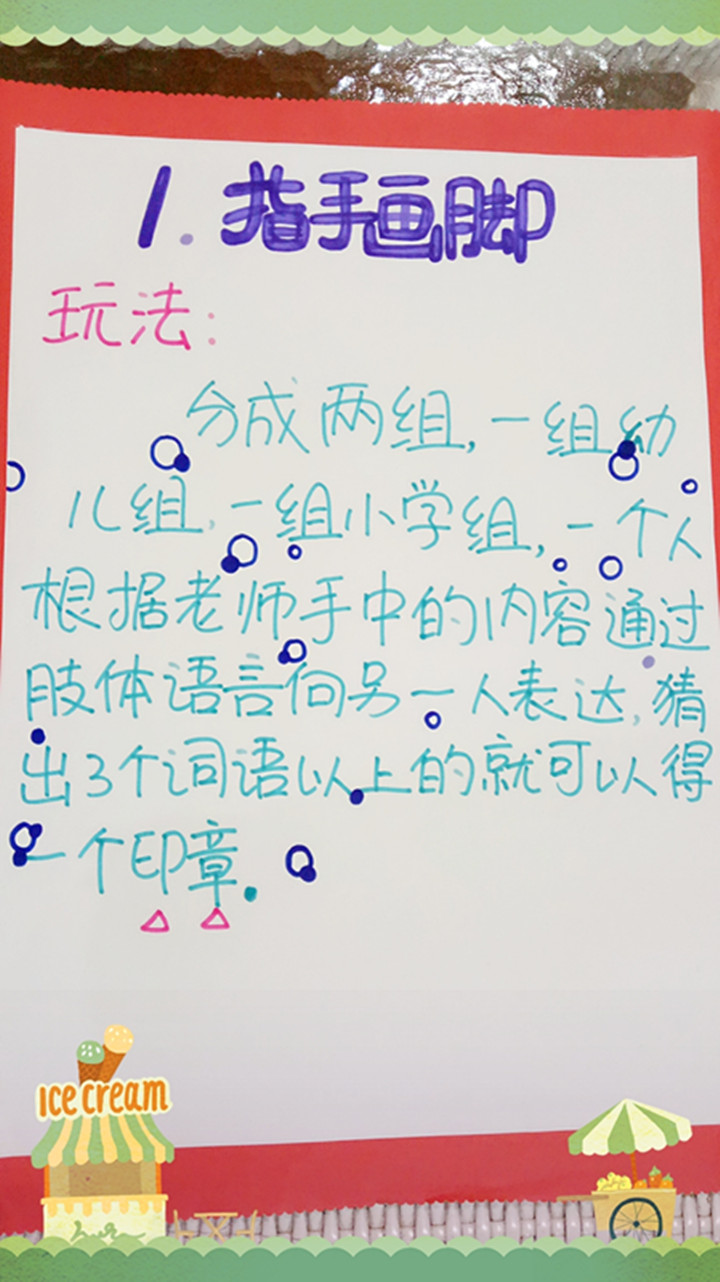 1.指手画脚
玩法:
分成两组,一组幼
儿组,一组小学组,一个人
根据老师手中的内容通过
肢体语言向另一人表达,猜
出3个词语以上的就可以得
一个印章.
Ice cream